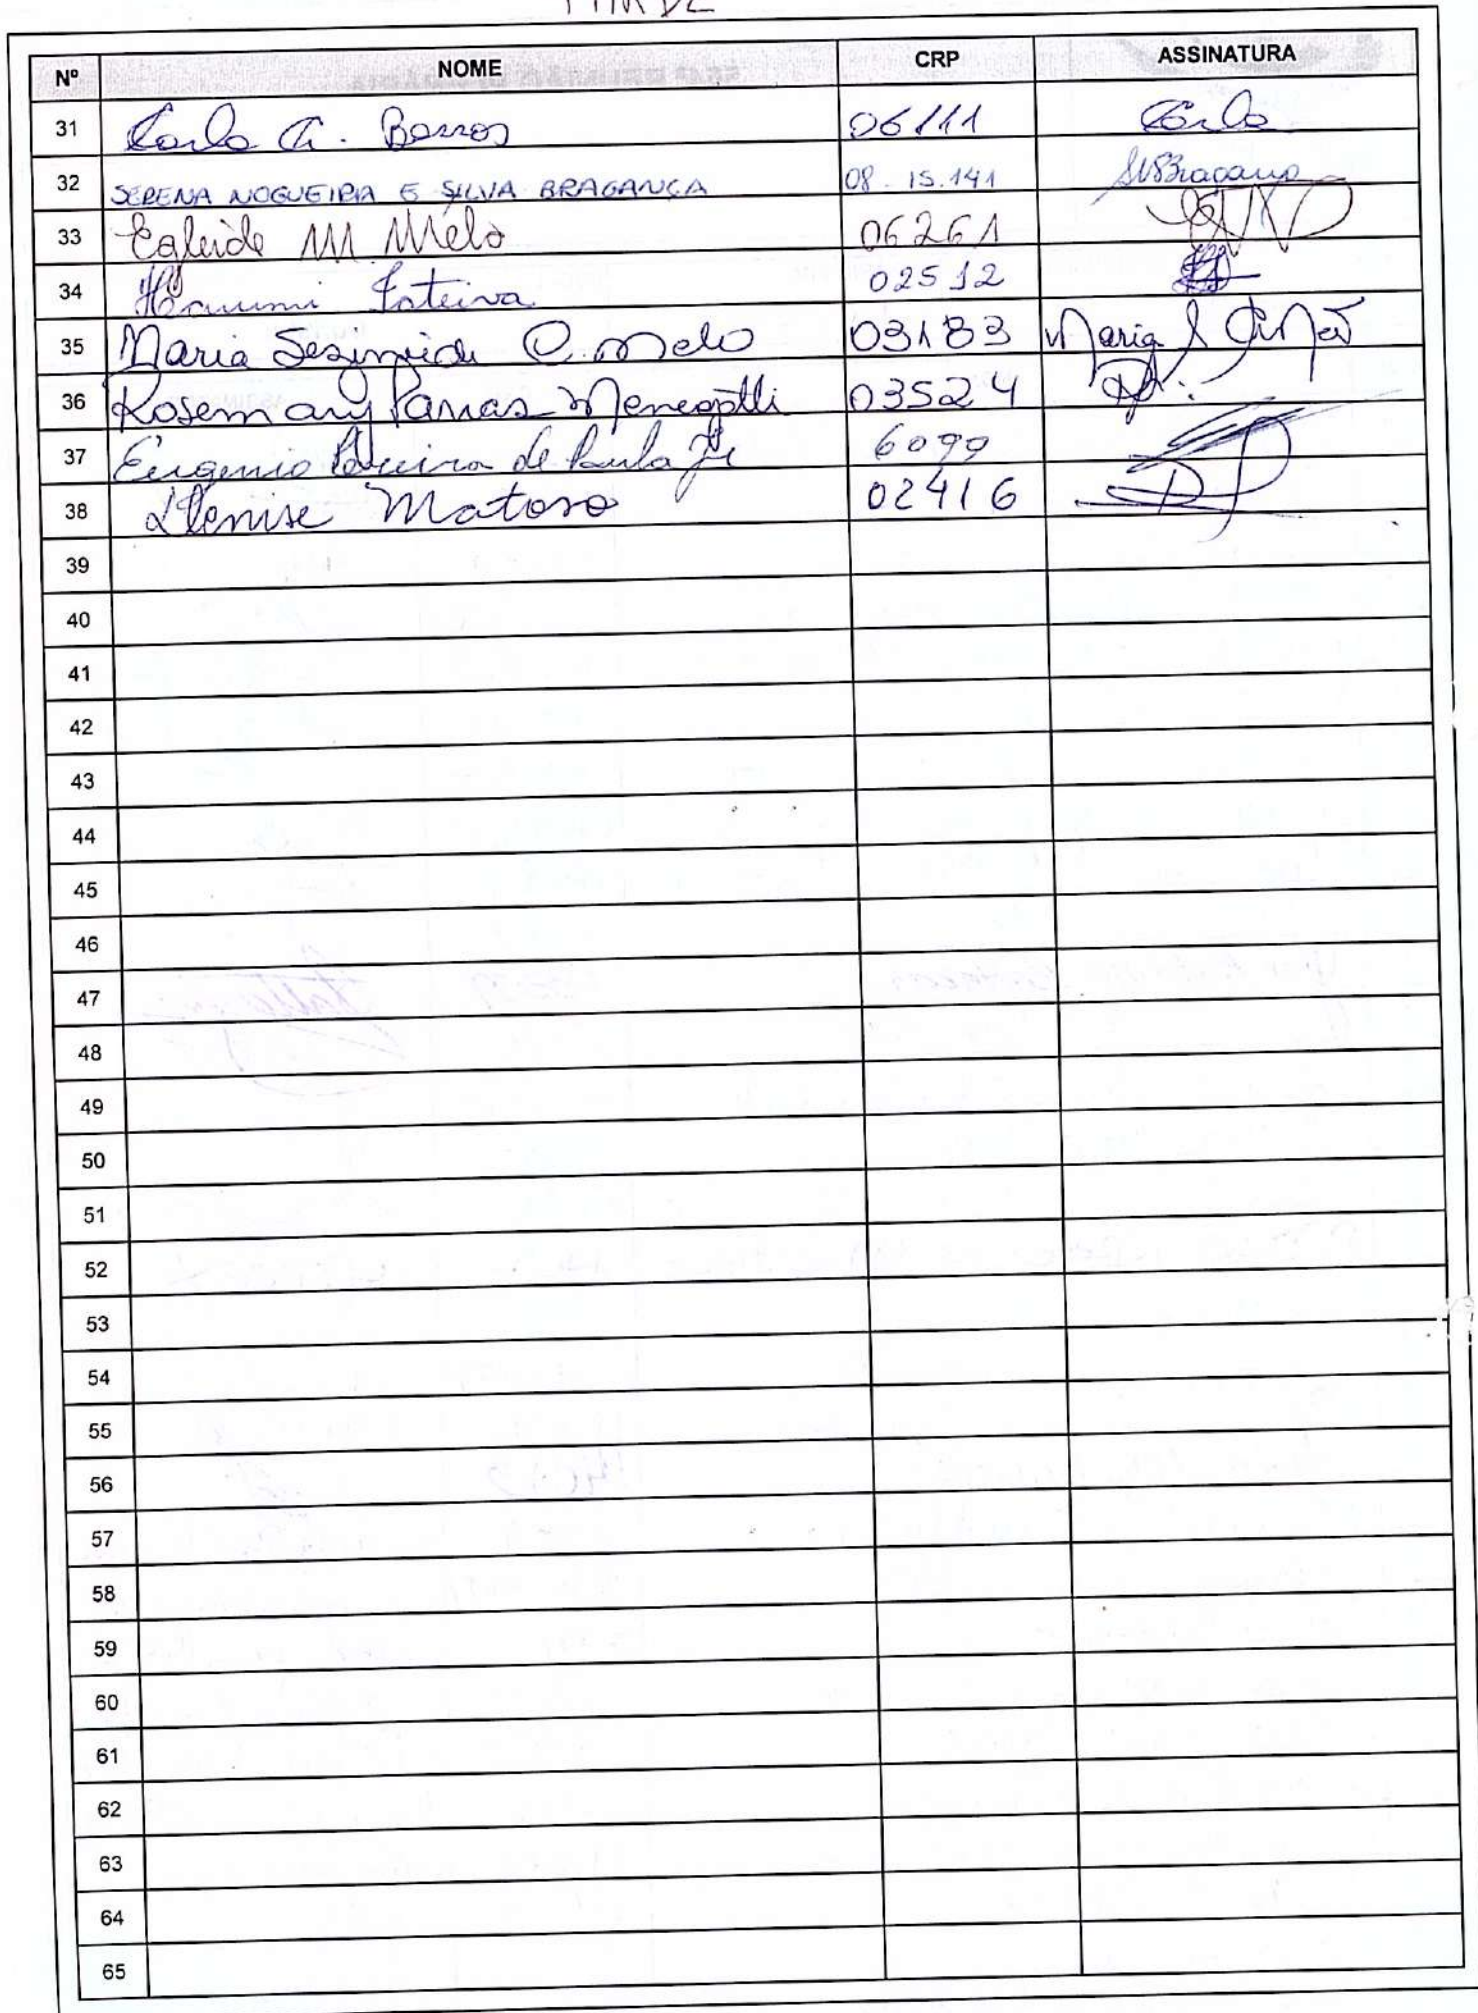 TARDE
Nº NOME CRP ASSINATURA
31 Carla A. Barros 06111 Carla
32 SERENA NOGUEIRA E SILVA BRAGANÇA 08.15.141 SNSBragança
33 Egleide M Melo 06261
34 02512
35 Maria Sezineide C. Melo 03183 Maria S
36 Rosemary Parras Menegatti 03524
37 Eugenio Pereira de Paula Jr 6099
38 Denise Matoso 02416
39
40
41
42
43
44
45
46
47
48
49
50
51
52
53
54
55
56
57
58
59
60
61
62
63
64
65